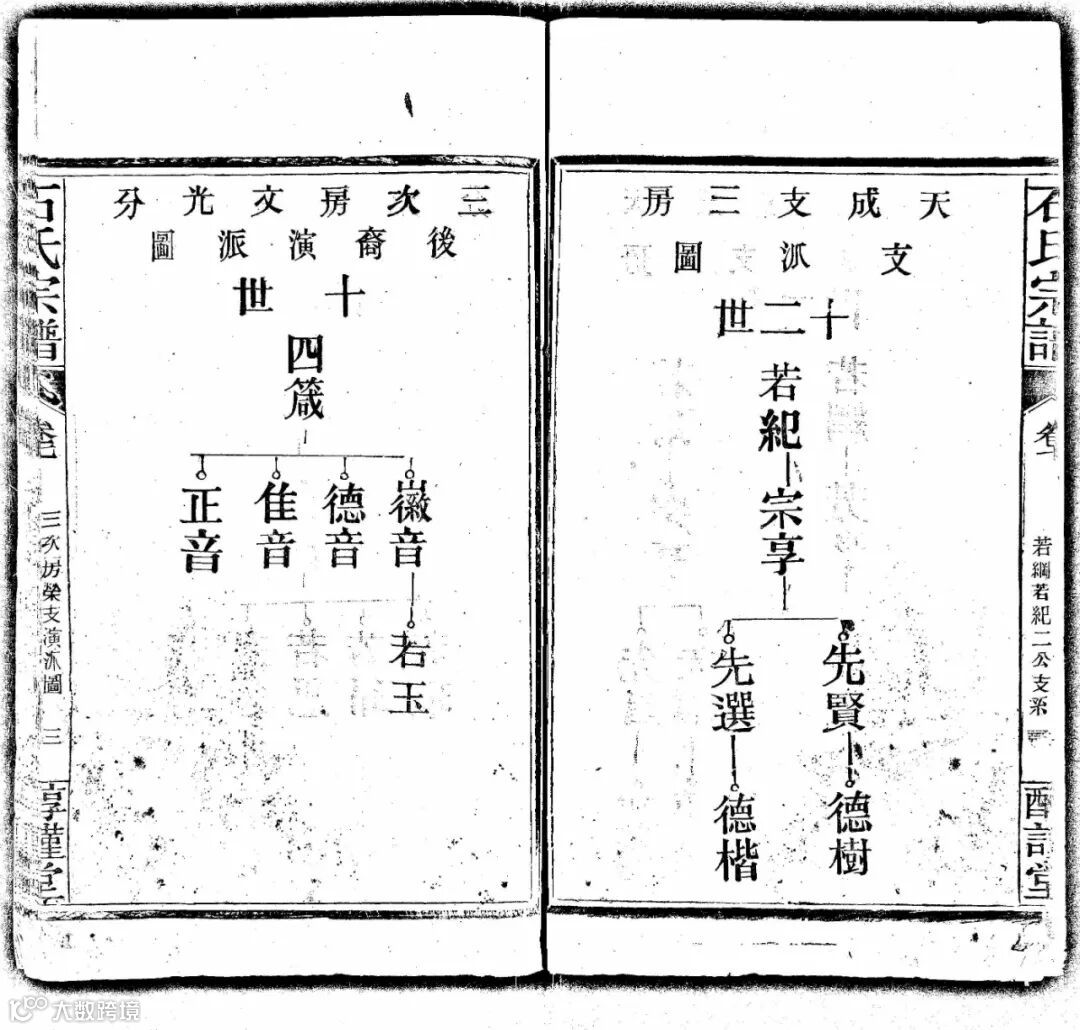 石氏宗譜
卷一
若綱若紀二公支系
天成支三房
支派圖
十二世
若紀
宗享
先賢
先選
德樹
德楷
三次房文光分
後裔演派圖
十世
四箴
徽音
德音
佳音
正音
若玉
石氏宗譜
三次房榮支演派圖
三
大数跨境